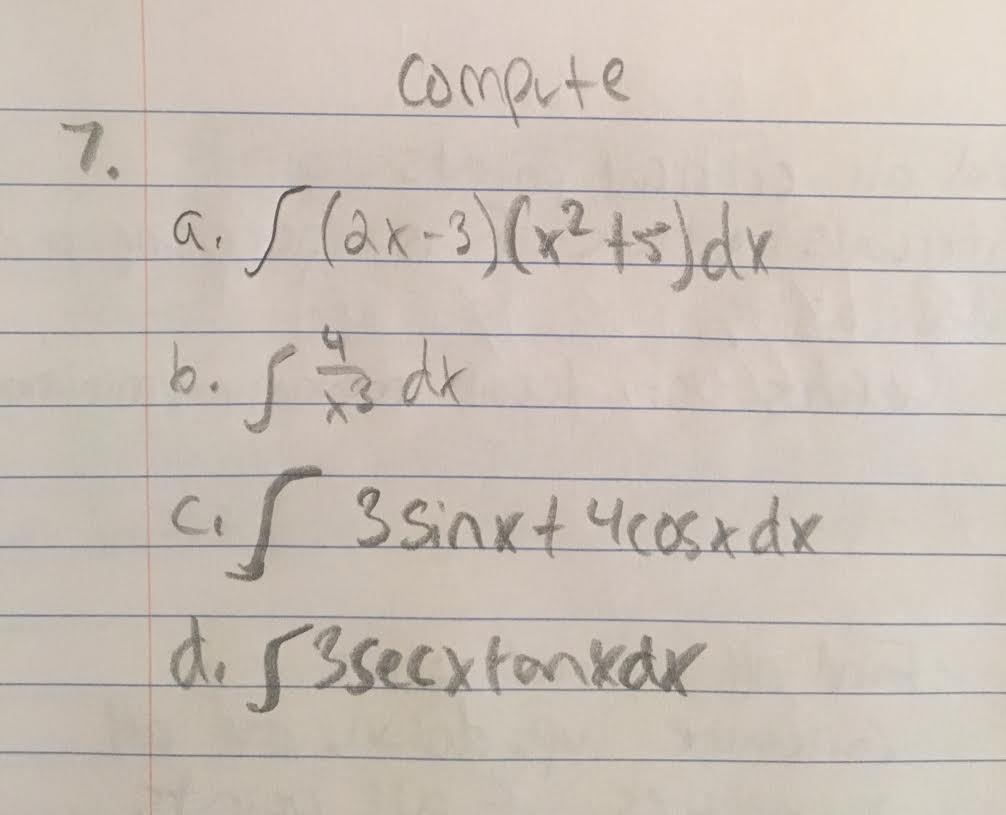 Compute
7.
a. ∫ (2x-3)(x²+5)dx
b. ∫ 4/x³ dx
c. ∫ 3sinx+4cosxdx
d. ∫3secxtanxdx